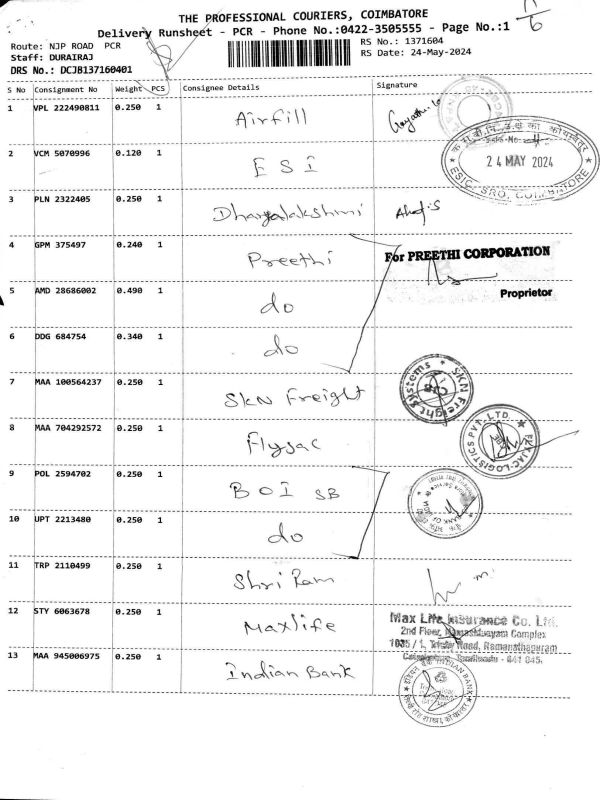 THE PROFESSIONAL COURIERS, COIMBATORE
Delivery Runsheet - PCR - Phone No.:0422-3505555 - Page No.:1
Route: NJP ROAD PCR
RS No.: 1371604
Staff: DURAIRAJ
RS Date: 24-May-2024
DRS No.: DCJB137160401
S No Consignment No Weight PCS Consignee Details Signature
1 VPL 222490811 0.250 1 Airfill
2 VCM 5070996 0.120 1 ESI
24 MAY 2024
3 PLN 2322405 0.250 1 Dhanalakshmi
4 GPM 375497 0.240 1 Preethi
For PREETHI CORPORATION
Proprietor
5 AMD 28686002 0.490 1 do
6 DDG 684754 0.340 1 do
7 MAA 100564237 0.250 1 SKN Freight
SKN Freight Systems
8 MAA 704292572 0.250 1 Flyjac
FLYJAC LOGISTICS PVT. LTD.
9 POL 2594702 0.250 1 BOI SB
10 UPT 2213480 0.250 1 do
11 TRP 2110499 0.250 1 Shri Ram
12 STY 6063678 0.250 1 Maxlife
Max Life Insurance Co. Ltd.
2nd Floor, Complex
Road, Ramanathapuram
Tamilnadu - 641 045.
13 MAA 945006975 0.250 1 Indian Bank
INDIAN BANK